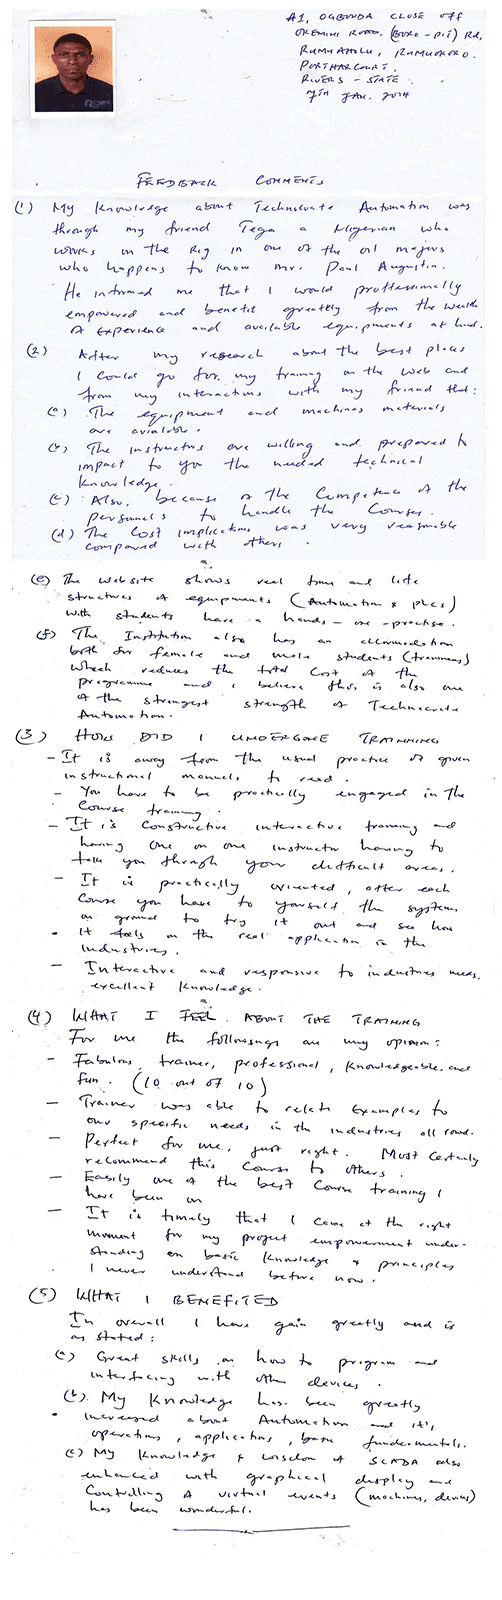 A1, OGBONDA CLOSE OFF
OKEMINI ROAD, (BORO-PIT) Rd,
RUMUAHOLU, RUMUOKORO.
PORTHARCOURT.
RIVERS - STATE.
7th JAN. 2014
FEEDBACK COMMENTS
(1) My knowledge about Technicrate Automation was
through my friend Tega a Nigerian who
works on the Rig in one of the oil majors
who happens to know Mr. Paul Augustin.
He informed me that I would proffessionally
empowered and benefit greatly from the wealth
of experience and available equipments at hand.
(2) After my research about the best places
I could go for my training on the web and
from my interactions with my friend that:
(a) The equipment and machines materials
are available.
(b) The instructors are willing and prepared to
impact to you the needed technical
knowledge.
(c) Also, because of the Competence of the
personnels to handle the Courses.
(d) The Cost implications was very reasonable
compared with others.
(e) The website shows real time and life
structures of equipments (Automation & PLCs)
with students have a hands-on-practise.
(f) The Institution also has an accommodation
both for female and male students (trainees)
which reduces the total Cost of the
programme and I believe this is also one
of the strongest strength of Technicrate
Automation.
(3) HOW DID I UNDERGONE TRAINNING
- It is away from the usual practice of given
instructional manuels to read.
- You have to be practically engaged in the
Course training.
- It is Constructive interactive training and
having one on one instructor having to
talk you through your difficult areas.
- It is practically oriented, after each
Course you have to yourself the systems
on ground to try it out and see how
It feels in the real application in the
Industries.
- Interactive and responsive to industries needs,
excellent knowledge.
(4) WHAT I FEEL ABOUT THE TRAINING
For me the followings are my opinion:
- Fabulous trainer, professional, knowledgeable and
fun. (10 out of 10)
- Trainer was able to relate Examples to
our specific needs in the industries all round.
- Perfect for me, just right. Most Certainly
recommend this Course to others.
- Easily one of the best Course training I
have been on
- It is timely that I came at the right
moment for my project empowerment under-
standing on basic knowledge & principles
I never understand before now.
(5) WHAT I BENEFITED
In overall I have gain greatly and is
as stated:
(a) Great skills on how to program and
interfacing with other devices.
(b). My Knowledge has been greatly
increased about Automation and it's,
operations, applications, basic fundermentals.
(c) My knowledge & wisdom of SCADA also
enhanced with graphical display and
Controlling of virtual events (machines, devices)
has been wonderful.